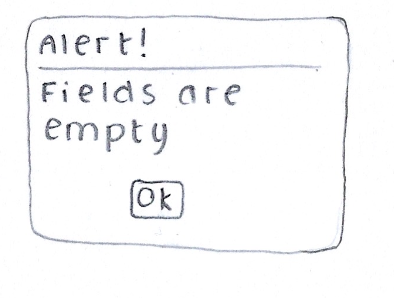 Alert!
Fields are
empty
Ok